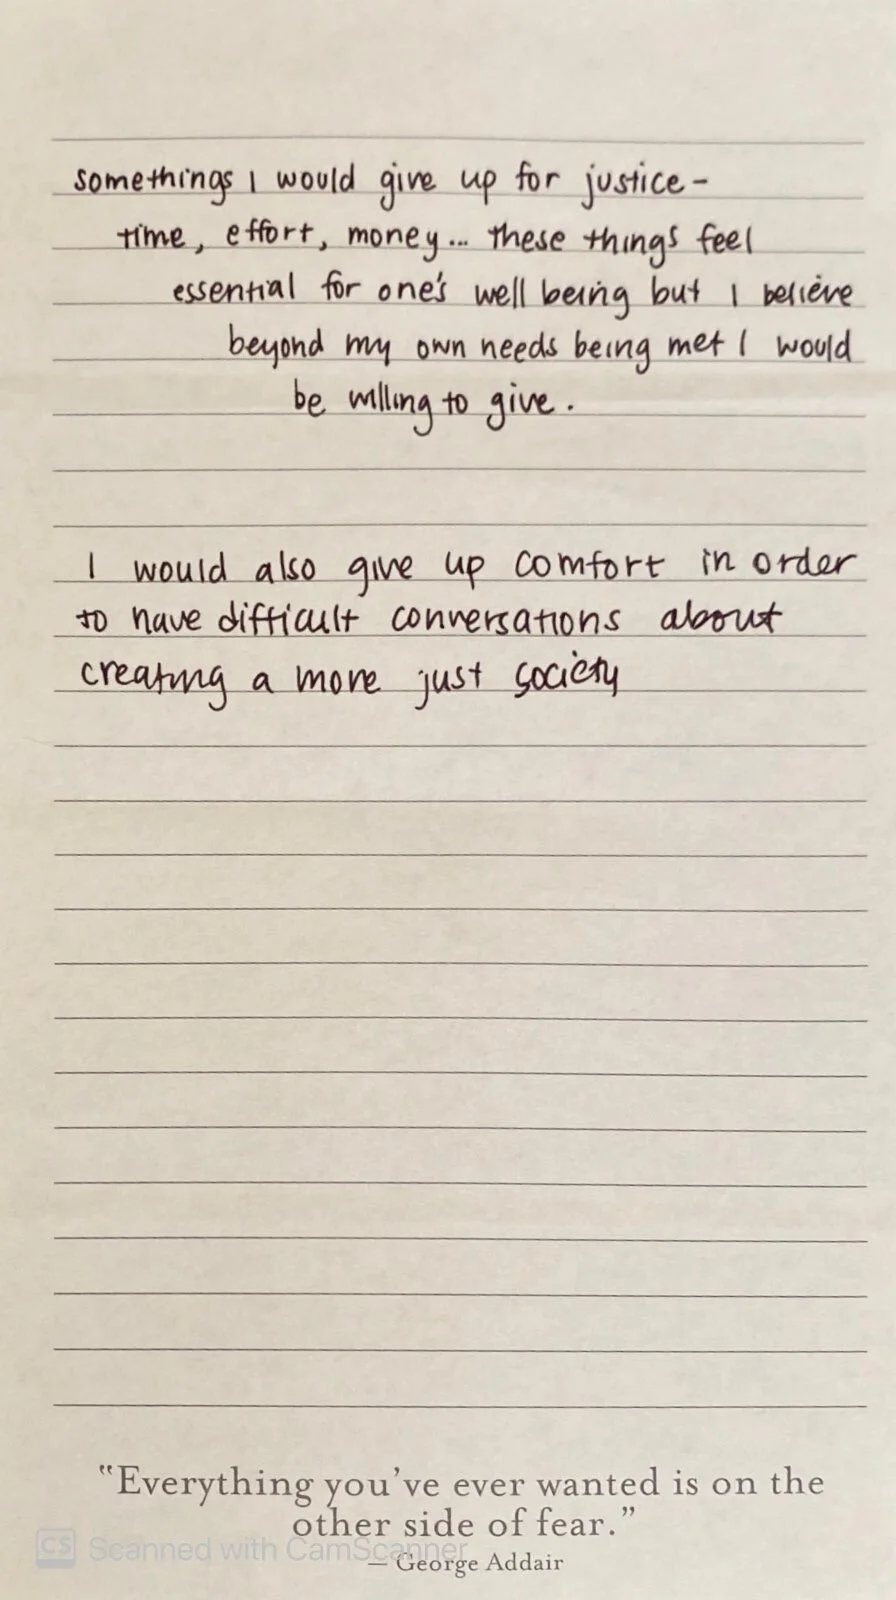 somethings I would give up for justice -
time, effort, money... these things feel
essential for one's well being but I believe
beyond my own needs being met I would
be willing to give.
I would also give up comfort in order
to have difficult conversations about
creating a more just society
"Everything you've ever wanted is on the
other side of fear."
— George Addair
CS Scanned with CamScanner